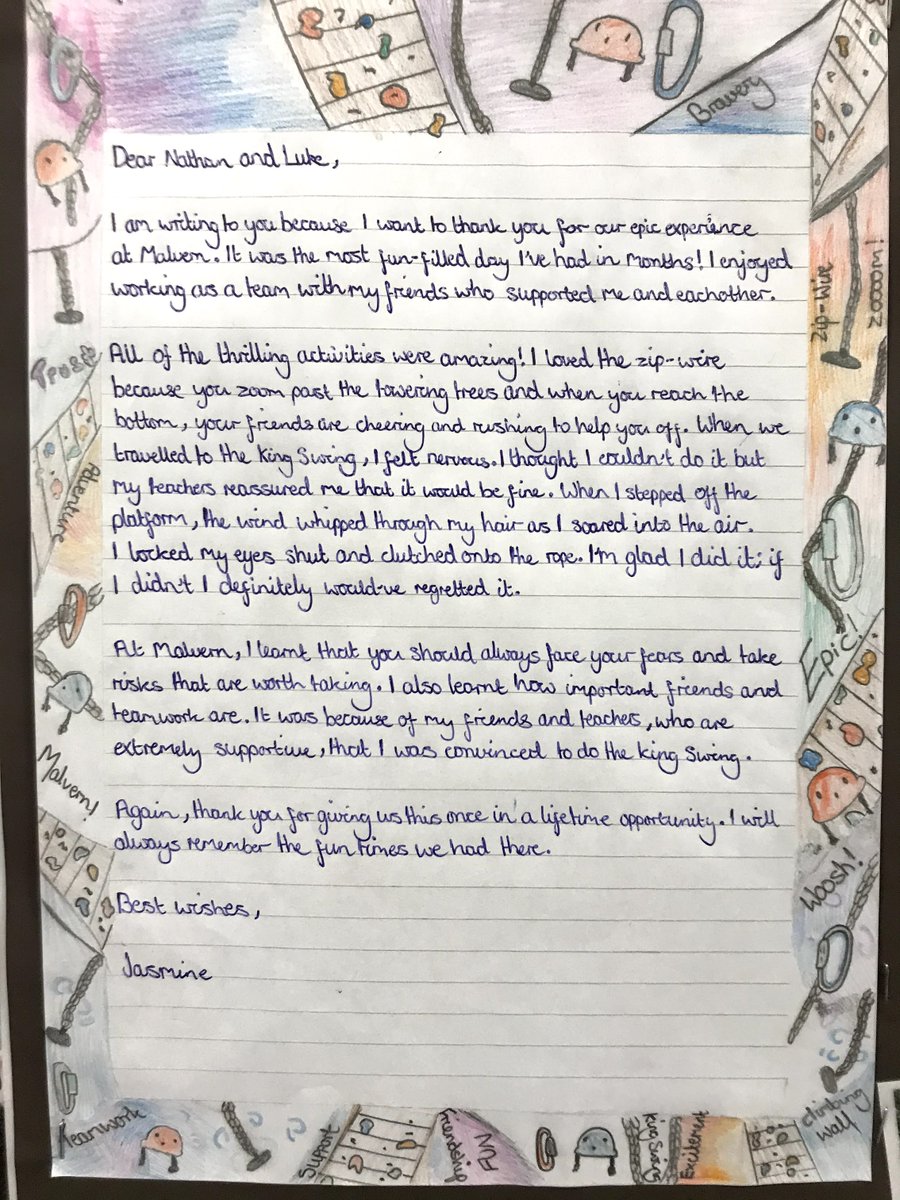 Bravery
Dear Nathan and Luke,
I am writing to you because I want to thank you for our epic experience
at Malvern. It was the most fun-filled day I've had in months! I enjoyed
working as a team with my friends who supported me and eachother.
All of the thrilling activities were amazing! I loved the zip-wire
because you zoom past the towering trees and when you reach the
bottom, your friends are cheering and rushing to help you off. When we
travelled to the King Swing, I felt nervous. I thought I couldn't do it but
my teachers reassured me that it would be fine. When I stepped off the
platform, the wind whipped through my hair as I soared into the air.
I locked my eyes shut and clutched onto the rope. I'm glad I did it; if
I didn't I definitely would've regretted it.
At Malvern, I learnt that you should always face your fears and take
risks that are worth taking. I also learnt how important friends and
teamwork are. It was because of my friends and teachers, who are
extremely supportive, that I was convinced to do the King Swing.
Again, thank you for giving us this once in a lifetime opportunity. I will
always remember the fun times we had there.
Best wishes,
Jasmine
Zip-Wire
zooooom!
Trust
Adventure
Epic!
Malvern!
Woosh!
Teamwork
Support
Friendship
FUN
King Swing
Excitement
climbing
wall